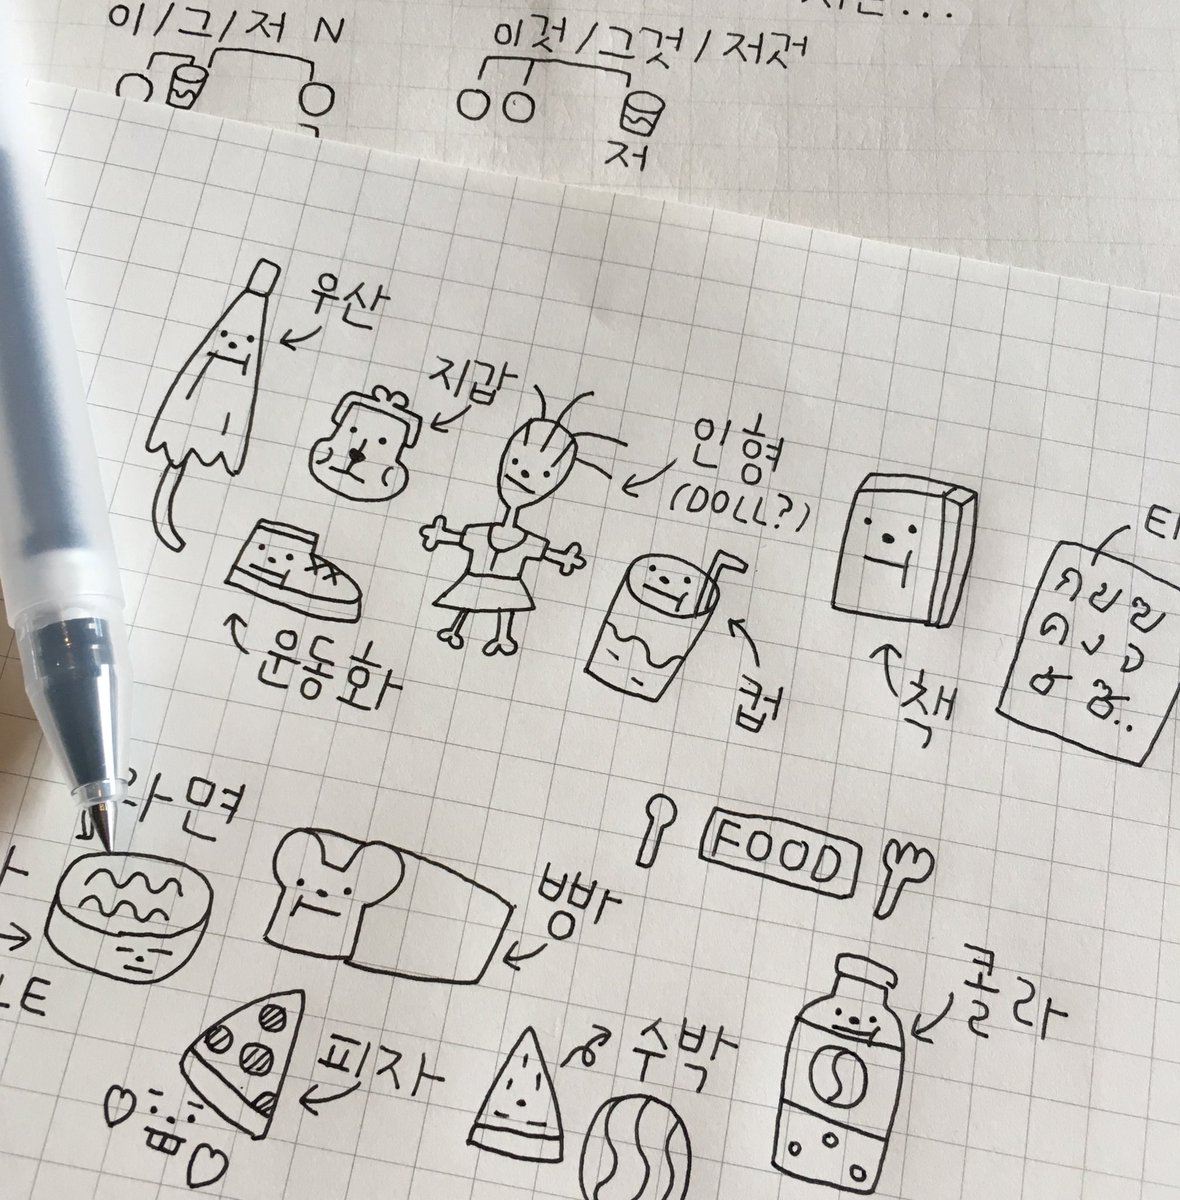 이/그/저 N
이것/그것/저것
저
우산
지갑
인형
(DOLL?)
운동화
컵
책
ㄱㄴㄹ
라면
빵
FOOD
콜라
피자
수박